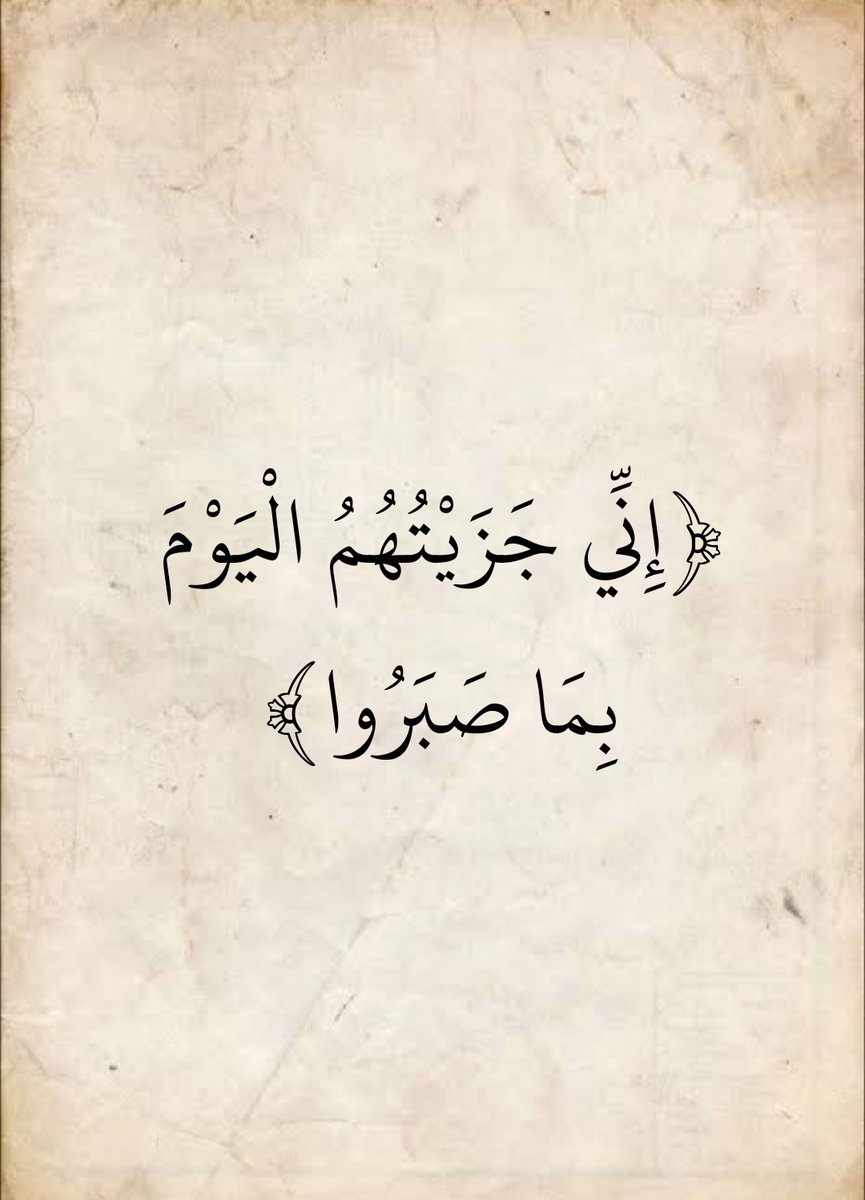 ﴿إِنِّي جَزَيْتُهُمُ الْيَوْمَ
بِمَا صَبَرُوا﴾